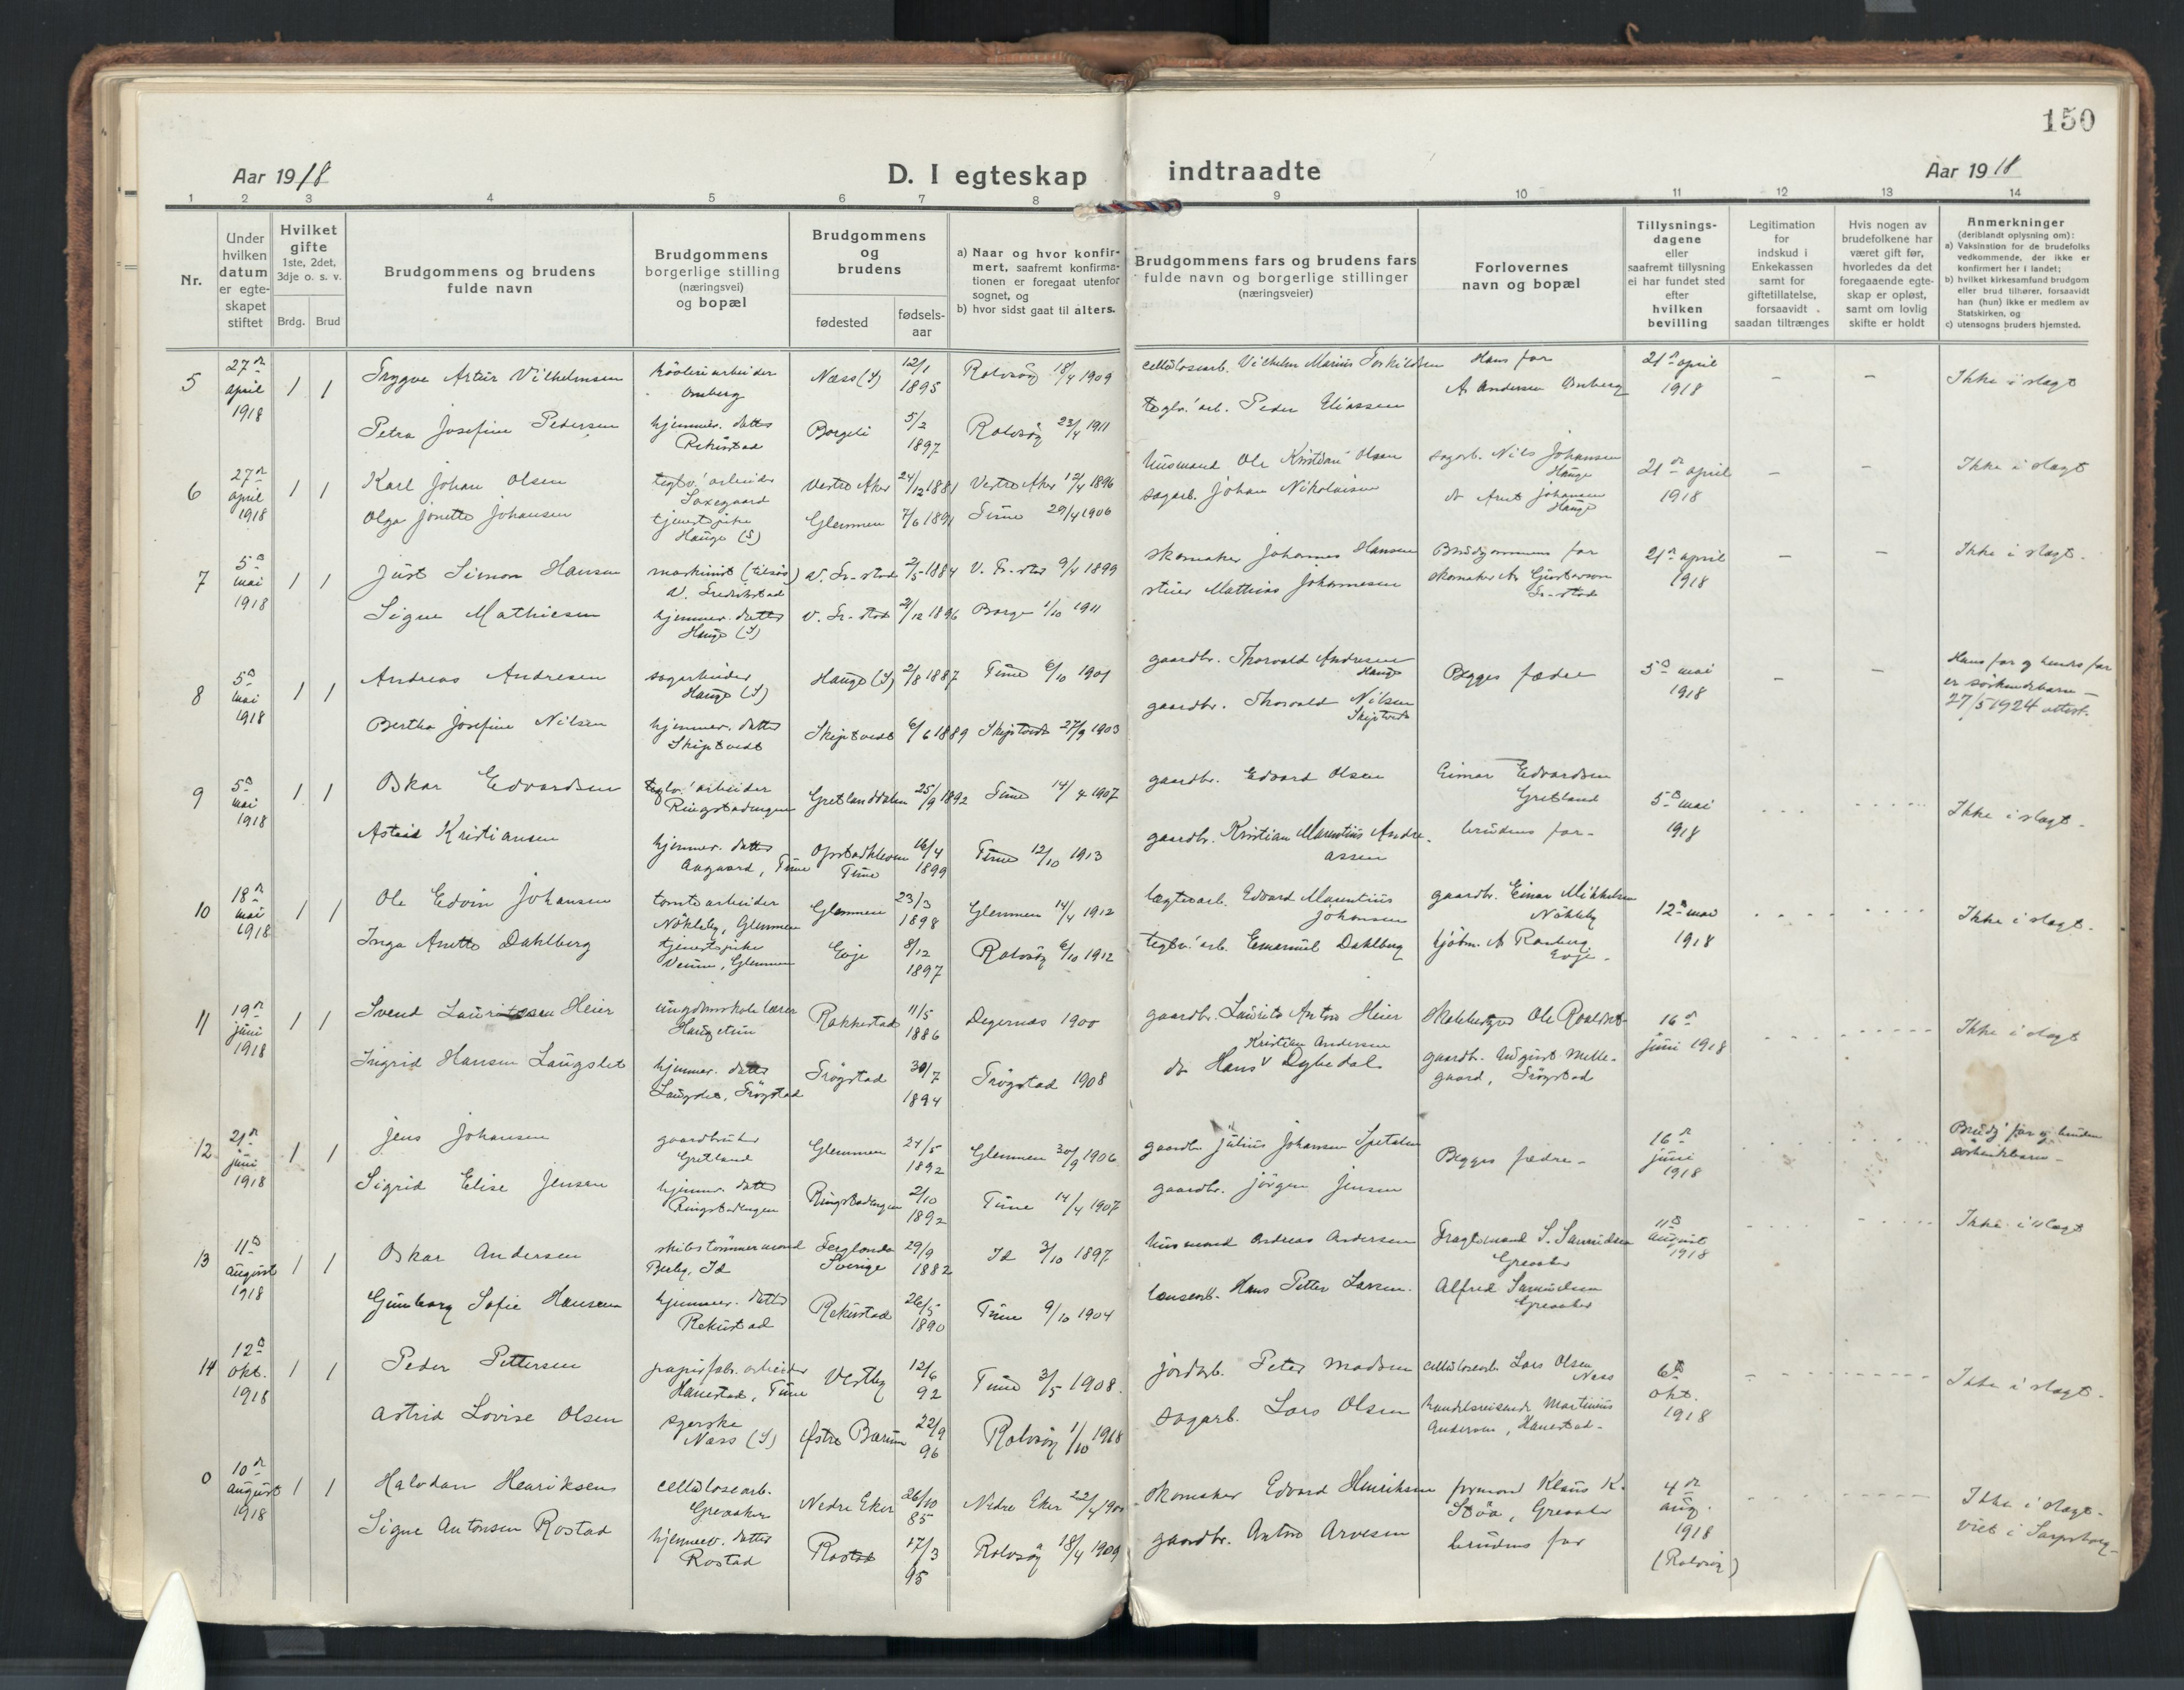 150
Aar 1918
D. I egteskap indtraadte
Aar 1918
1 2 3 4 5 6 7 8 9 10 11 12 13 14
Nr.
Under
hvilken
datum
er egte-
skapet
stiftet
Hvilket
gifte
1ste, 2det,
3dje o. s. v.
Brdg. Brud
Brudgommens og brudens
fulde navn
Brudgommens
borgerlige stilling
(næringsvei)
og bopæl
Brudgommens
og
brudens
fødested
fødsels-
aar
a) Naar og hvor konfir-
mert, saafremt konfirma-
tionen er foregaat utenfor
sognet, og
b) hvor sidst gaat til alters.
Brudgommens fars og brudens fars
fulde navn og borgerlige stillinger
(næringsveier)
Forlovernes
navn og bopæl
Tillysnings-
dagene
eller
saafremt tillysning
ei har fundet sted
efter
hvilken
bevilling
Legitimation
for
indskud i
Enkekassen
samt for
giftetillatelse,
forsaavidt
saadan tiltrænges
Hvis nogen av
brudefolkene har
været gift før,
hvorledes da det
foregaaende egte-
skap er opløst,
samt om lovlig
skifte er holdt
Anmerkninger
(deriblandt oplysning om):
a) Vaksination for de brudefolks
vedkommende, der ikke er
konfirmert her i landet;
b) hvilket kirkesamfund brudgom
eller brud tilhører, forsaavidt
han (hun) ikke er medlem av
Statskirken, og
c) utensogns bruders hjemsted.
5
27de
april
1918
1 1
Trygve Artur Vilhelmsen
arbeider
Omberg
Næss (T)
12/1
1895
Rolvsöy 18/4 1909
cellulosearb. Vilhelm Marius Torkildsen
Hans far
21de april
1918
Ikke i slagt
Petra Josefine Pedersen
hjemmev. datter
Rekustad
Borgeli
5/2
1897
Rolvsöy 23/4 1911
teglv. arb. Peder Eliassen
A. Andersen Omberg
6
27de
april
1918
1 1
Karl Johan Olsen
teglv. arbeider
Vestre Aker 24/12 1881 Vestre Aker 12/4 1896
husmand Ole Kristian Olsen
sagarb. Nils Johansen
Hauge
21de april
1918
Ikke i slagt
Olga Jonette Johansen
tjenestepike
Hauge (S)
Glemmen 7/6 1891 Tune 29/4 1906
sagarb. Johan Nikolaisen
Johansen
Hauge
7
5te
mai
1918
1 1
Just Simon Hansen
maskinist (tilsös)
V. Fredrikstad
V. Fr-stad 2/5 1884 V. Fr-stad 9/4 1899
skomaker Johannes Hansen
Brudgommens far
21de april
1918
Ikke i slagt.
Signe Mathisen
hjemmev. datter
Hauge (T)
V. Fr-stad 21/12 1896 Borge 1/10 1911
stuer Mathias Johannesen
skomaker A. Gustavson
Fr-stad
8
5te
mai
1918
1 1
Andreas Andresen
sagarbeider
Hauge (T)
Hauge (T) 2/8 1887 Tune 6/10 1901
gaardbr. Thorvald Andresen
Hauge
Begges fædre
5te mai
1918
Hans far og hendes far
er söskendebarn -
27/5 1924 attest.
Bertha Josefine Nilsen
hjemmev. datter
Skiptvedt
Skiptvedt 6/6 1889 Skiptvedt 27/9 1903
gaardbr. Thorvald Nilsen
Skiptvedt
9
5te
mai
1918
1 1
Oskar Edvardsen
teglv. arbeider
Ringstadengen
Gretlanddalen 25/9 1892 Tune 14/4 1907
gaardbr. Edvard Olsen
Einar Edvardsen
Gretland
5te mai
1918
Ikke i slagt.
Astrid Kristiansen
hjemmev. datter
Aagaard, Tune
Opstadkleven
Tune
16/4
1899
Tune 12/10 1913
gaardbr. Kristian Marentius Andre-
assen
brudens far
10
18de
mai
1918
1 1
Ole Edvin Johansen
tomtearbeider
Nökleby, Glemmen
Glemmen
23/3
1898
Glemmen 14/4 1912
lægtearb. Edvard Marentius
Johansen
gaardbr. Einar Mikkelsen
Nökleby
12te mai
1918
Ikke i slagt.
Inga Anette Dahlberg
tjenestepike
Veum, Glemmen
Evje
8/12
1897
Rolvsöy 6/10 1912
teglv. arb. Emanuel Dahlberg
kjöbm. A. Rosberg
Evje.
11
19de
juni
1918
1 1
Svend Lauritssen Heier
ungdomsskolelærer
Haugetun
Rakkestad
11/5
1886
Degernes 1900
gaardbr. Laurits Anton Heier
Skolebestyrer Ole Roalkvam
16de
juni 1918
Ikke i slagt
Ingrid Hansen Laugslet
hjemmev. datter
Laugslet, Trögstad
Trögstad
30/7
1894
Trögstad 1908
do Hans Kristian Andersen Dybedal
gaardbr. August Melle-
gaard, Trögstad
12
21de
juni
1918
1 1
Jens Johansen
gaardbruker
Gretland
Glemmen
24/5
1892
Glemmen 30/9 1906
gaardbr. Julius Johansen Spetalen
Begges fædre -
16de
juni
1918
Brudg. far og bruden
söskendebarn -
Sigrid Elise Jensen
hjemmev. datter
Ringstadengen
Ringstadengen
2/10
1892
Tune 14/4 1907
gaardbr. Jörgen Jensen
13
11te
august
1918
1 1
Oskar Andersen
skibstömmermand
Berby, Id
Sverige
29/9
1882
Id 3/10 1897
husmand Andreas Andersen
Fragtemand S. Samuelsen
Greaaker
11te
august
1918
Ikke i slagt
Gunborg Sofie Hansen
hjemmev. datter
Rekustad
Rekustad
26/5
1890
Tune 9/10 1904
lensearb. Hans Petter Larsen.
Alfred Samuelsen
Greaaker
14
12te
okt.
1918
1 1
Peder Pettersen
papirfabr. arbeider
Hauestad, Tune
Vestby
12/6
92
Tune 3/5 1908.
jordarb. Peter Madsen
cellulosearb. Lars Olsen
Næss
6te
okt.
1918
Ikke i slagt.
Astrid Lovise Olsen
syerske
Næss (T)
Østre Bærum
22/9
96
Rolvsöy 1/10 1918
sagarb. Lars Olsen
handelsreisende Martinius
Andersen, Hauestad -
0
10de
august
1918
1 1
Halvdan Henriksen
cellulosearb.
Greaaker
Nedre Eker
26/10
85
Nedre Eker 22/4 1900
skomaker Edvard Henriksen
formand Klaus K.
Stöa, Greaaker
4de
aug.
1918
(Rolvsöy)
Ikke i slagt.
viet i Sarpsborg -
Signe Antonsen Rostad
hjemmev. datter
Rostad
Rostad
17/3
95
Rolvsöy 18/4 1909
gaardbr. Anton Arvesen
brudens far